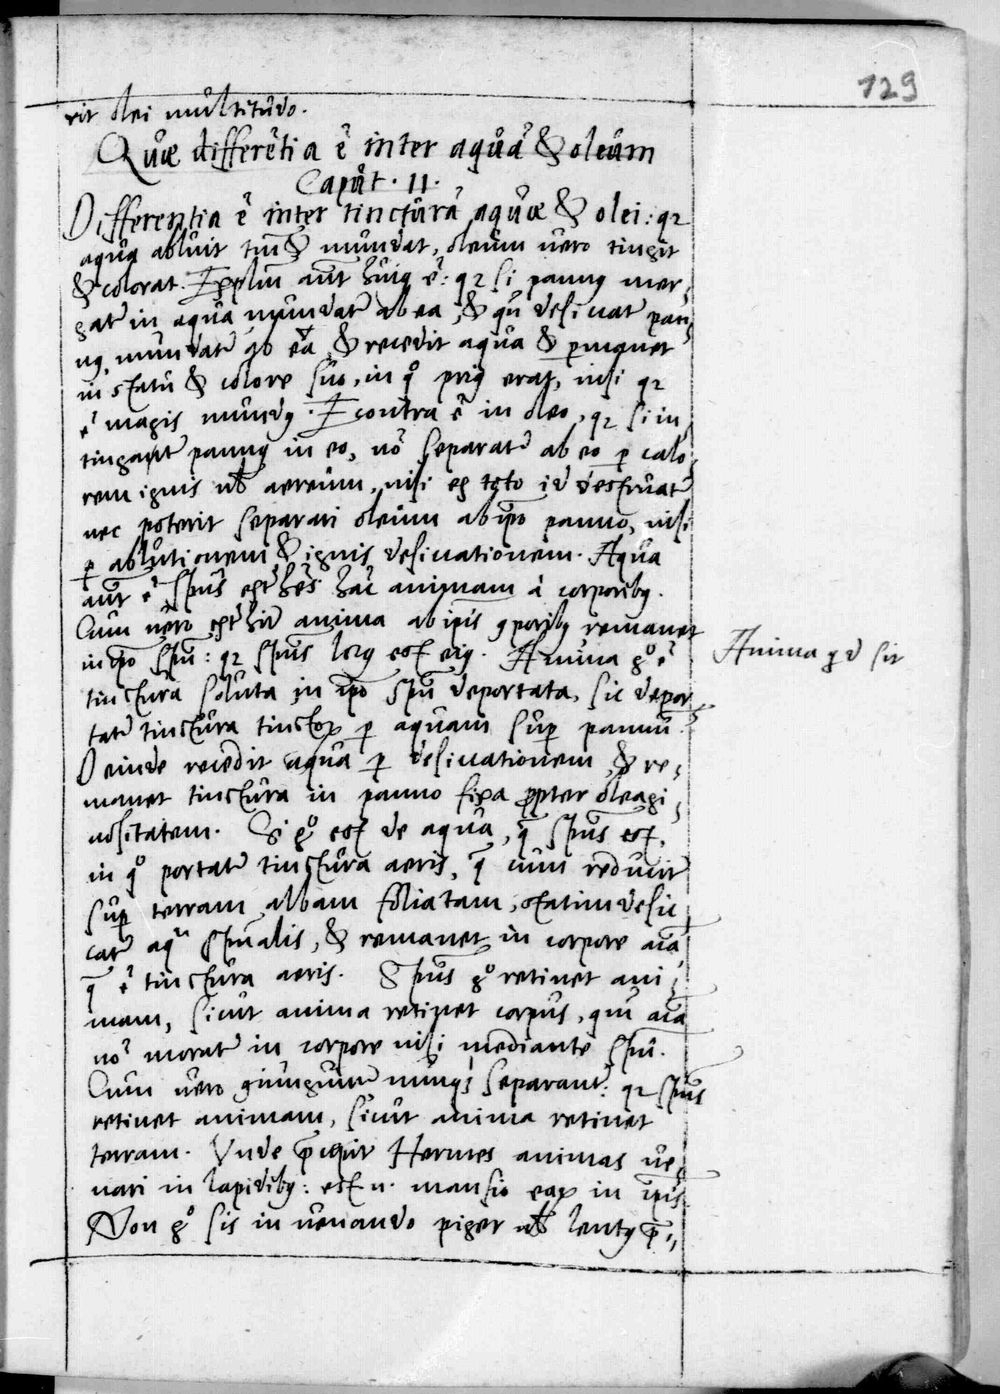 129
rit olei multitudo.
Quæ differẽtia ẽ inter aquã & oleum
Caput. II.
Differentia ẽ inter tincturã aquæ & olei: qꝛ
aqua abluit tm̃ & mundat, oleum vero tingit
& colorat. Explũ aũt huiꝰ ẽ: qꝛ si pannꝰ mer,
gat̃ in aqua mundat̃ ab ea, & qũ desiccat̃ pan
nꝰ, mundat̃ ab eã, & recedit aqua & ꝑmanet
in statu & colore suo, in qº priꝰ erat, nisi qꝛ
ẽ magis mundꝰ. Econtra ẽ in oleo, qꝛ si in,
tingat̃ pannꝰ in eo, nõ separat̃ ab eo ꝑ calo,
rem ignis vł aereum, nisi ex toto id destruat̃
nec poterit separari oleum ab ip̃o panno, nisi
ꝑ ablutionem & ignis desiccationem. Aqua
aũt ẽ Sp̃us ext̃hẽs hãc animam à corporibꝰ.
Cum vero ext̃hit̃ anima ab ip̃is ꝯporibꝰ remanet
in ip̃o Sp̃u: qꝛ Sp̃us locꝰ est eiꝰ. Anima gº ẽ
Anima qd sit
tinctura soluta in ip̃o Sp̃u deportata, sic depor,
tat̃ tinctura tinctoꝝ ꝑ aquam sup̃ pannũ.
Deinde recedit aqua ꝑ desiccationem, & re,
manet tinctura in panno fixa ꝓpter oleagi,
nositatem. Si gº est de aqua, q̃ Sp̃us est,
in qº portat̃ tinctura aeris, q̃ cum reducit̃
sup̃ terram albam foliatam, statim desic
cat̃ aqᵃ sp̃ualis, & remanet in corpore aĩa
q̃ ẽ tinctura aeris. Sp̃us gº retinet ani,
mam, sicut anima retinet corpus, qm̃ aĩa
nõ morat̃ in corpore nisi mediante Sp̃u.
Cum vero ꝯiunguntur nunqᵃ separant̃: qꝛ Sp̃us
retinet animam, sicut anima retinet
terram. Unde p̃cipit Hermes animas ve,
nari in lapidibꝰ: est n. mansio eaꝝ in ip̃is.
Non gº sis in venando piger vł lentꝰ p̃,,